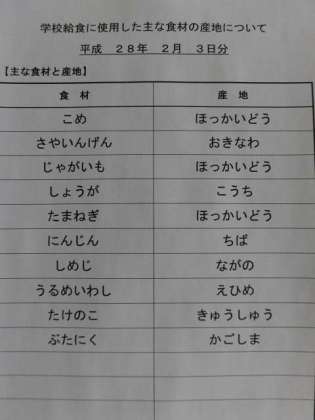 学校給食に使用した主な食材の産地について
平成 28年 2月 3日分
【主な食材と産地】
食 材 産 地
こめ ほっかいどう
さやいんげん おきなわ
じゃがいも ほっかいどう
しょうが こうち
たまねぎ ほっかいどう
にんじん ちば
しめじ ながの
うるめいわし えひめ
たけのこ きゅうしゅう
ぶたにく かごしま